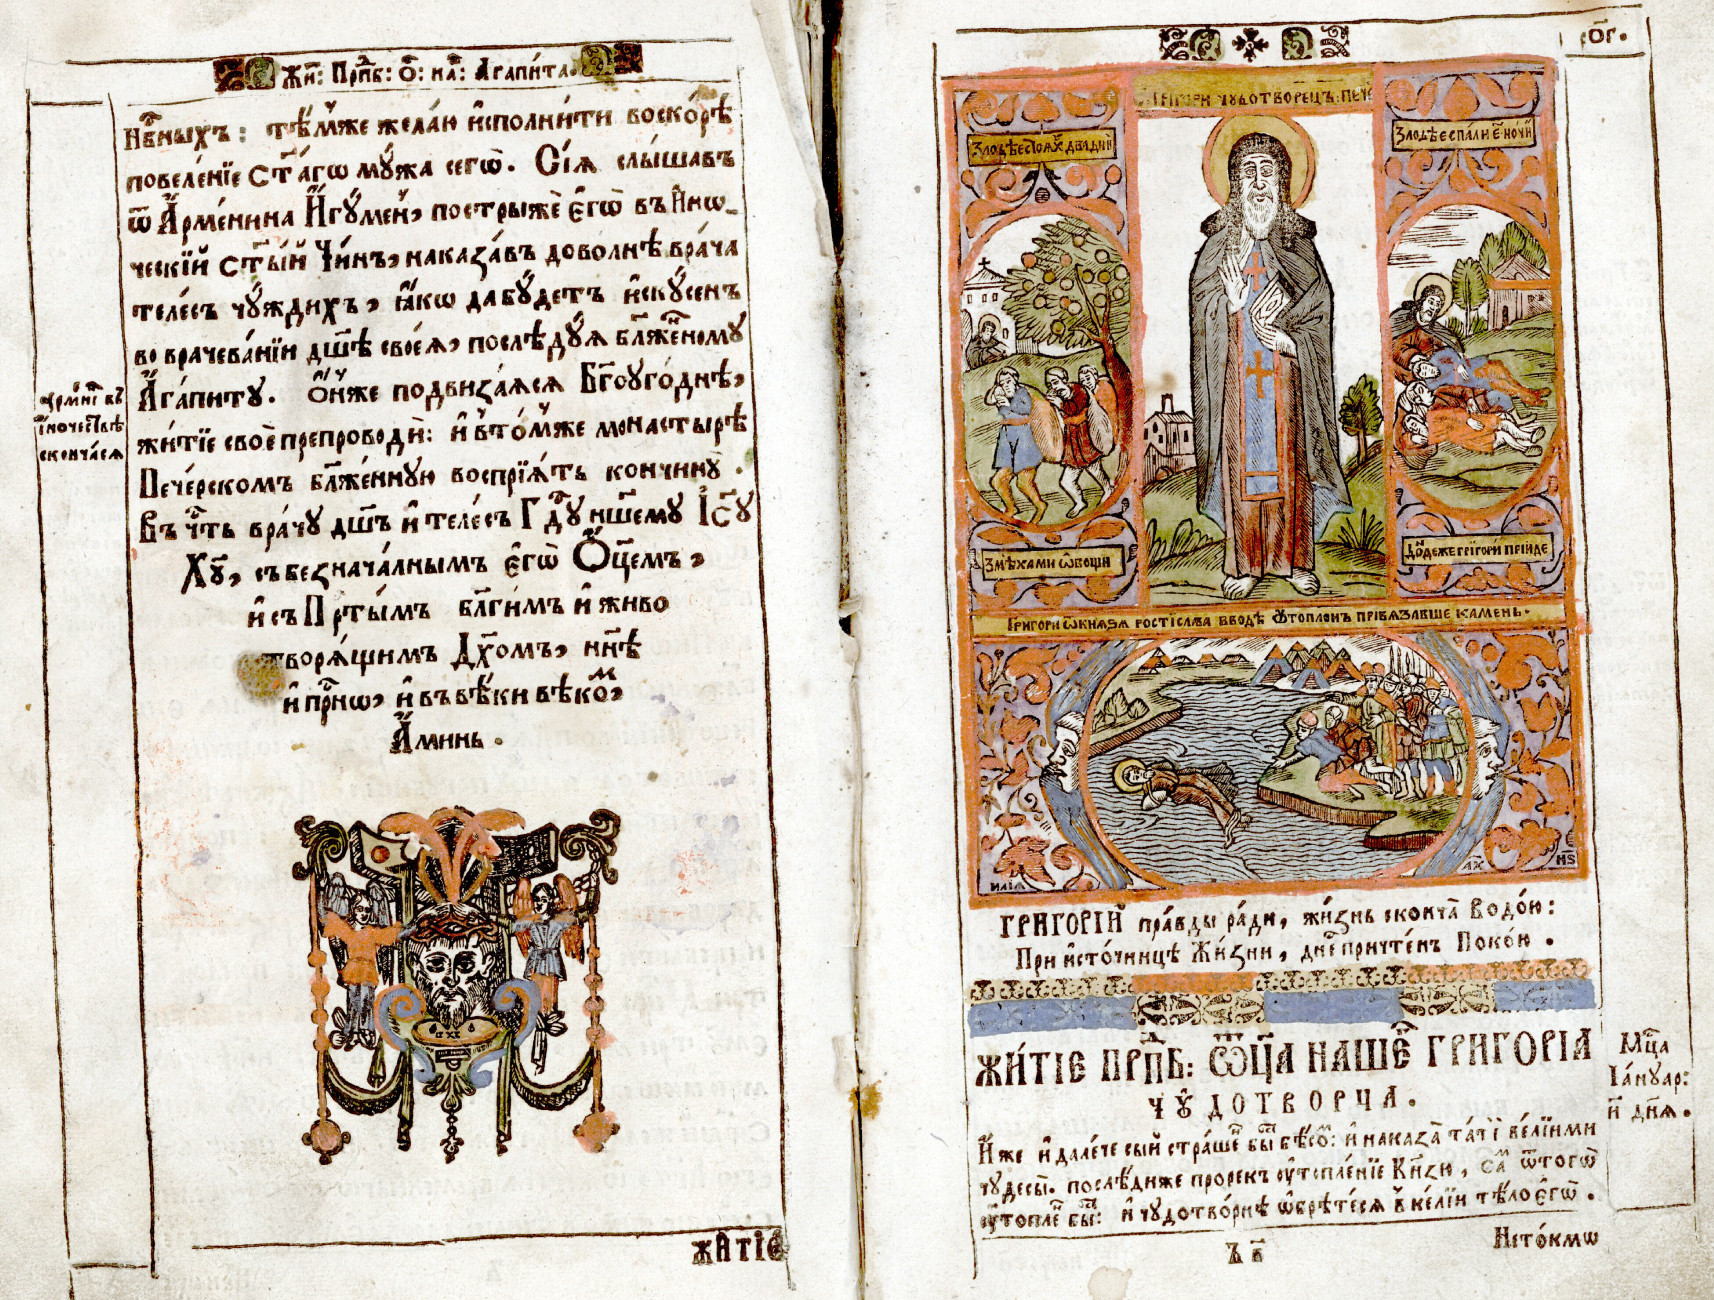 Жи҃: Прпⷣб: Ѻ҃: нш҃: Агапи́та.
нѣⷭ҇ныхъ: тѣ́мже желаѧ и҆спо́лнити воско́рѣ
повелѣ́нїе ст҃а́гѡ мꙋ́жа сегѡ̀. Сїѧ̑ слы́шавъ
ѿ А҆рме́нина И҆гꙋ́менъ, пострыже є҆гѡ̀ въ И҆нѡ-
ческїй ст҃ы́й Чи́нъ, наказа́въ дово́лнѣ врача̀
теле́съ чꙋ́ждихъ, ꙗ҆́кѡ да бꙋ́детъ и҆скꙋ́сенъ
во врачева́нїи дш҃ѣ своеѧ̀, послѣ́дꙋѧ бл҃же́нномꙋ
А҆га́питꙋ. Ѻ҆́нже подвиза́ѧсѧ Бг҃оꙋго́днѣ,
житїѐ своѐ препроводѝ: и҆ в то́мже монастырѣ̀
Пече́рскомъ бл҃же́ннꙋю воспрїѧ́тъ кончи́нꙋ.
Въ че́ⷭ҇ть врачꙋ̀ дш҃ъ и҆ теле́съ Гдⷭ҇ꙋ нш҃емꙋ І҆с҃ꙋ
Хꙋ҃, съ безнача́лнымъ є҆гѡ̀ Ѻц҃е́мъ,
и҆ съ Прⷭ҇ты́мъ бл҃ги́мъ и҆ живо
творѧ́щимъ Дх҃омъ, нн҃ѣ
и҆ при́ⷭ҇нѡ, и҆ въ вѣ́ки вѣко́мъ,
А҆ми́нь.
А҆рмѧни́ⷩ въ
и҆ночествѣ
сконча́сѧ
житїе
ѻ҃г.
Григори чꙋдотворецъ: пече
Злодѣе стоѧⷯ два дни
Злодѣе спали є҃ ночи
З мѣхами ѡвощи
Дондеже григори прїиде
Григори ѿ кнѧзѧ ростїслва в водѣ ꙋтопленъ привѧзавше камень.
илїѧ
ГРИГОРІЙ пра́вды ра́ди, жи́знь сконча̀ водо́ю:
При и҆сто́чницѣ Жи́зни, дн҃е причте́нъ Поко́ю.
ЖИТІЕ ПРПⷣБ: ѾЦ҃А НАШЕⷢ҇ ГРИГОРІА
ЧꙊДОТВОРЦА.
И҆́же и҆ дале́че сы́й стра́шеⷩ҇ бы́ⷭ҇ бѣсо́ⷨ: и҆ наказа̀ та́тїй ве́лїими
чꙋдесы̀. послѣди́же проре́къ ᲂу҆топле́нїе Кнѧ҃зю, са́ⷨ ѿ тогѡ̀
ᲂу҆то́плеⷩ бы́ⷭ҇: и҆ чꙋдотво́рнѣ ѡ҆брѣ́тесѧ в ке́лїи тѣ́ло є҆гѡ̀.
Мцⷭ҇а
І҆аннꙋар:
и҃ днѧ̀.
Не то́кмѡ